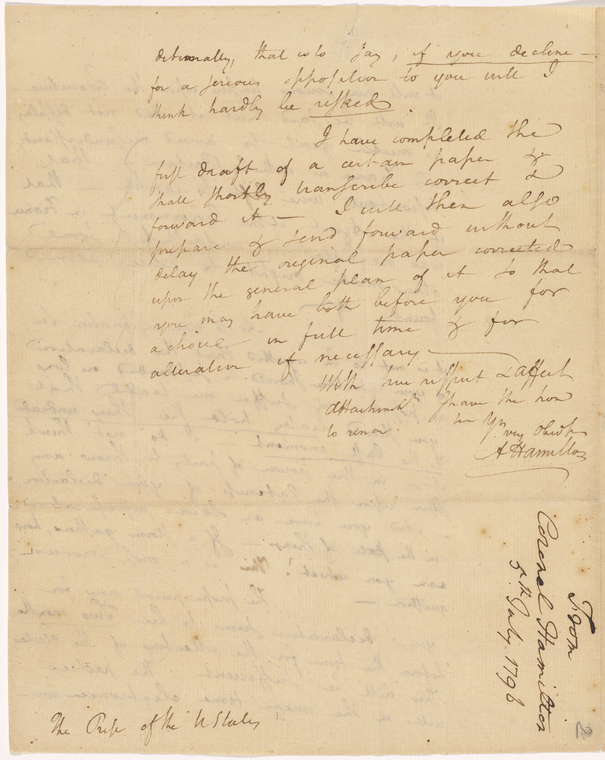 ditionally, that is to say, if you decline —
for a serious opposition to you will I
think hardly be risked.
I have completed the
first draft of a certain paper &
shall shortly transcribe correct &
forward it — I will then also
prepare & send forward without
delay the original paper corrected
upon the general plan of it so that
you may have both before you for
a choice in full time & for
alteration if necessary —
With true respect & affect
attachment I have the hon
to remain Yr
very Obedt
A Hamilton
From
Coronel Hamilton
5th July 1796
2
The Presi of the U States